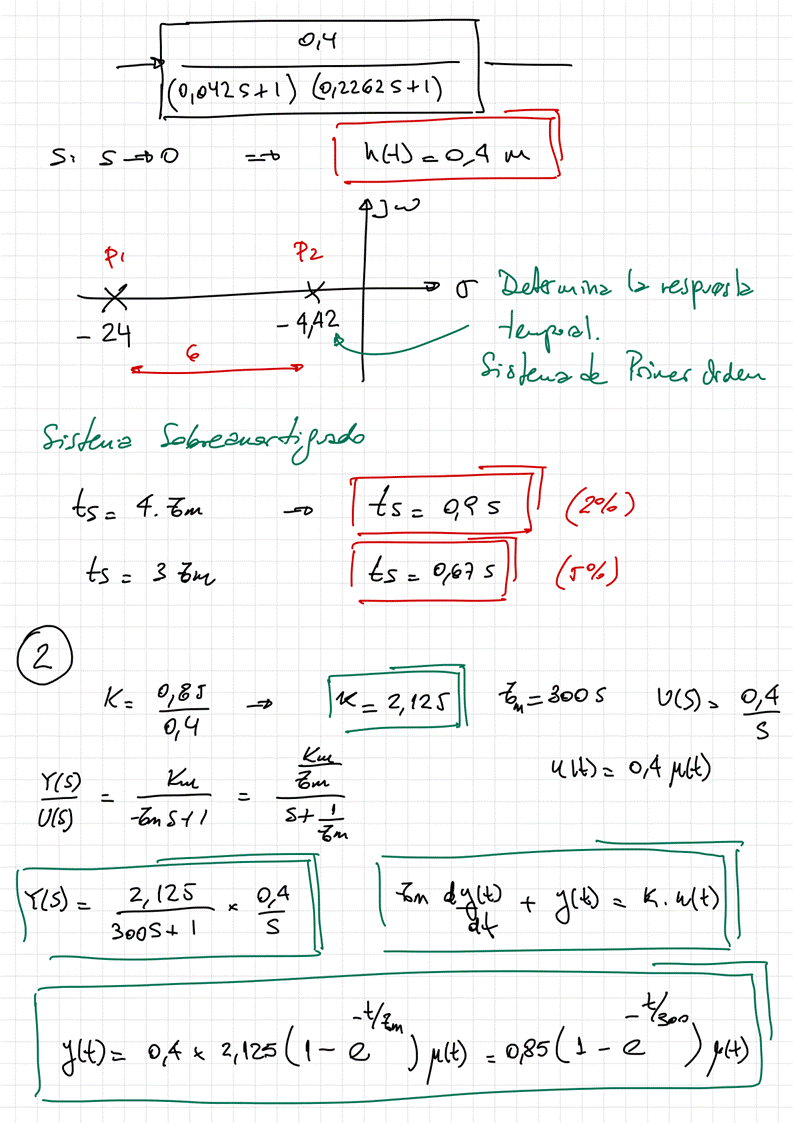 0,4
(0,042s+1) (0,2262s+1)
Si s→0 ⇒ h(t) = 0,4 m
jω
P1 P2
σ
-24 -4,42
6
Determina la respuesta
temporal.
Sistema de Primer Orden
Sistema Sobreamortiguado
ts = 4.τm → ts = 0,9 s (2%)
ts = 3 τm ts = 0,67 s (5%)
2
K = 0,85/0,4 → K = 2,125 τm = 300 s U(s) = 0,4/s
u(t) = 0,4 μ(t)
Y(s)/U(s) = Km/(τm s+1) = (Km/τm)/(s + 1/τm)
Y(s) = 2,125/(300s+1) × 0,4/s
τm dy(t)/dt + y(t) = K. u(t)
y(t) = 0,4 × 2,125 (1 - e^(-t/τm)) μ(t) = 0,85 (1 - e^(-t/300)) μ(t)